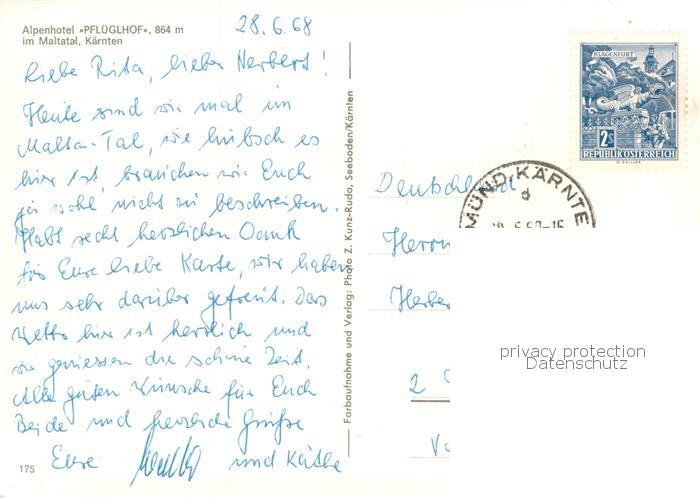 Alpenhotel »PFLÜGLHOF«, 864 m
im Maltatal, Kärnten
28.6.68
Liebe Rita, lieber Herbert!
Heute sind wir mal im
Malta-Tal, wie hübsch es
hier ist, brauchen wir Euch
ja wohl nicht zu beschreiben.
Habt recht herzlichen Dank
für Eure liebe Karte, wir haben
uns sehr darüber gefreut. Das
Wetter hier ist herrlich und
wir geniessen die schöne Zeit.
Alle guten Wünsche für Euch
Beide und herzliche Grüße
Eure
und Käthe
175
Farbaufnahme und Verlag: Photo Z. Kunz-Ruda, Seeboden/Kärnten
KLAGENFURT
2S
REPUBLIK ÖSTERREICH
MÜND-KÄRNTE
d
Deutschland
Herrn
Herber
2
privacy protection
Datenschutz